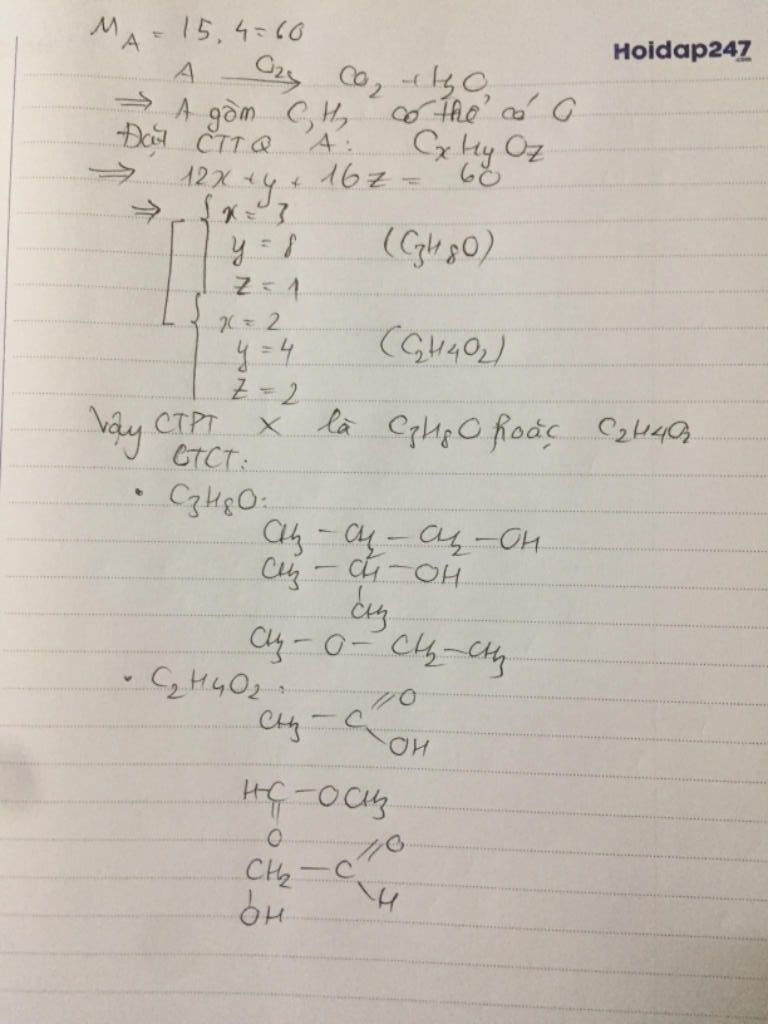 M_A = 15.4=60
Hoidap247.com
A —O2→ CO2 + H2O
⇒ A gồm C, H, có thể có O
Đặt CTTQ A: CxHyOz
⇒ 12x+y+16z = 60
⇒ x = 3
y = 8 (C3H8O)
z = 1
x = 2
y = 4 (C2H4O2)
z = 2
Vậy CTPT X là C3H8O hoặc C2H4O2
CTCT:
• C3H8O:
CH3 - CH2 - CH2 - OH
CH3 - CH - OH
CH3
CH3 - O - CH2 - CH3
• C2H4O2:
O
CH3 - C
OH
H-C - OCH3
O
O
CH2 - C
H
OH